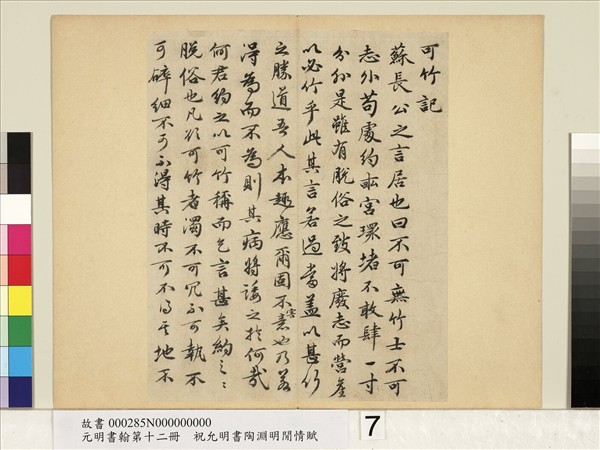 可竹記
蘇長公之言居也曰不可無竹士不可
志外苟處約畝宮環堵不敢肆一寸
分外是雖有脫俗之致將廢志而營產
以必竹乎此其言若過當蓋以甚竹
之勝道吾人本趣應爾固不害也乃若
得為而不為則其病將諉之於何哉
何君約之以可竹稱而乞言甚矣約之之
脫俗也凡於可竹者濁不可冗不可執不
可碎細不可不得其時不可不得其地不
故書 000285N000000000
元明書翰第十二冊 祝允明書陶淵明閒情賦
7